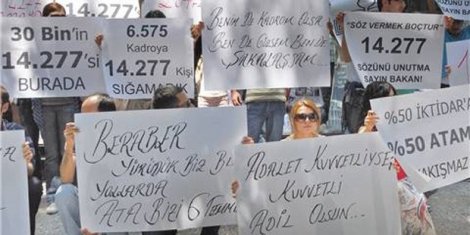 30 Bin'in
14.277'si
BURADA
6.575
Kadroya
14.277 Kişi
SIĞAMADIK
BENİM DE KADROM OLSA
BEN DE GÜLSEM BEN DE
ŞAKALAŞSAM...
"SÖZ VERMEK BORÇTUR"
14.277
SÖZÜNÜ UNUTMA
SAYIN BAKAN!
%50 İKTİDAR
%50 ATAMA
YAKIŞMAZ
BERABER
YÜRÜDÜK BİZ BU
YOLLARDA
ATA BİZİ 6 TEMMUZ
ADALET KUVVETLİYSE,
KUVVETLİ
ADİL OLSUN...